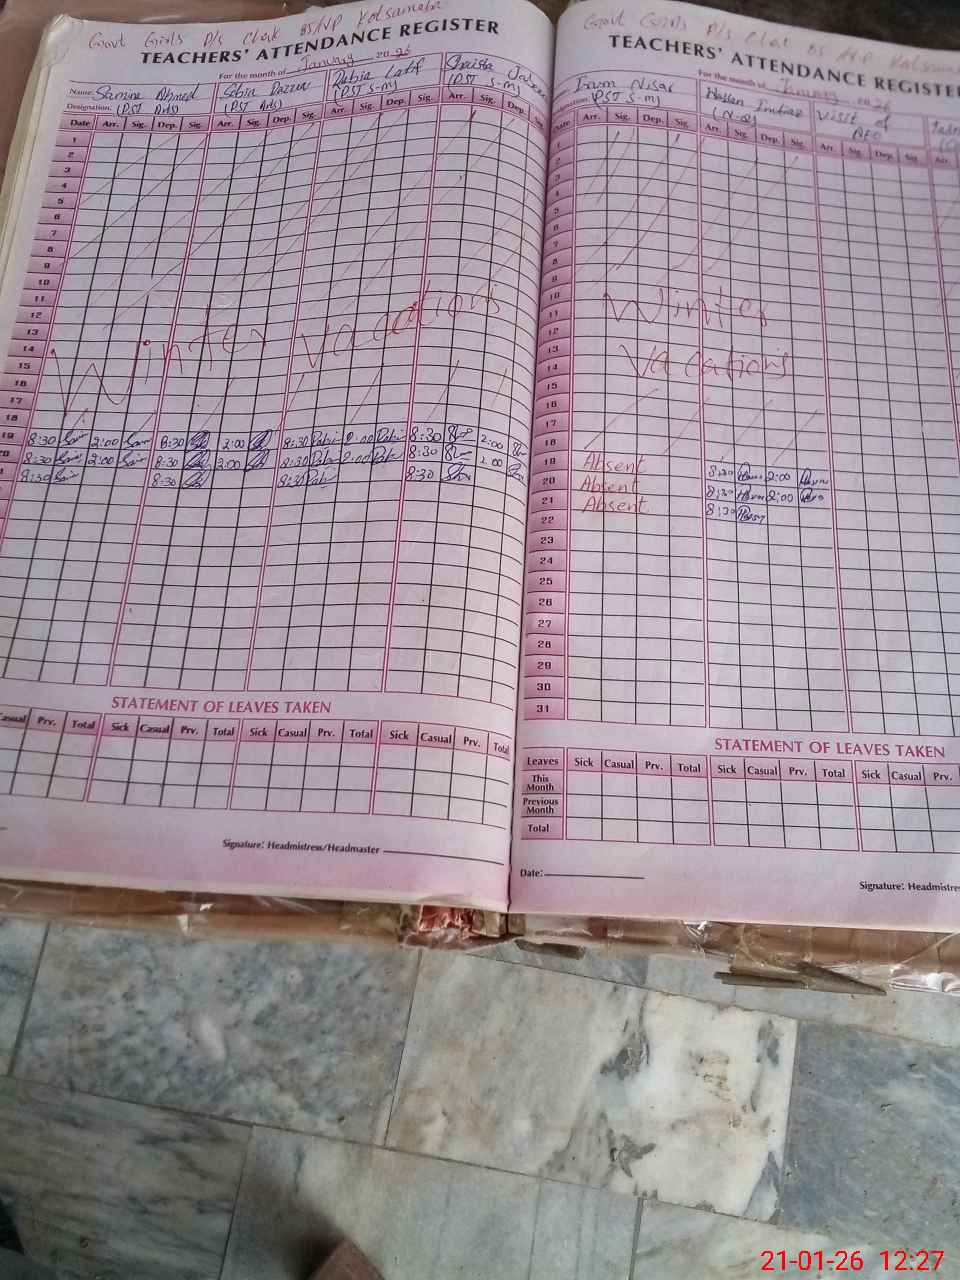 Govt Girls P/s Chak 85/NP Kotsamaba
TEACHERS' ATTENDANCE REGISTER
For the month of January 2026
Name: Samina Ahmed
Designation: (PST Arts)
(PST Arts)
Rabia Latif
(PST S-M)
(PST S-M)
Date Arr. Sig. Dep. Sig. Arr. Sig. Dep. Sig. Arr. Sig. Dep. Sig. Arr. Sig. Dep. Sig.
1
2
3
4
5
6
7
8
9
10
11
12
13
14
15
16
17
18
Winter vacations
19 8:30 2:00 8:30 2:00 8:30 2:00 8:30 2:00
20 8:30 2:00 8:30 2:00 8:30 2:00 8:30 2:00
8:30 8:30 8:30 8:30
STATEMENT OF LEAVES TAKEN
Casual Prv. Total Sick Casual Prv. Total Sick Casual Prv. Total Sick Casual Prv. Total
Signature: Headmistress/Headmaster
Govt Girls P/s Chak 85 N-P Kotsamaba
TEACHERS' ATTENDANCE REGISTER
For the month of January 2026
Iram Nisar
(PST S-M)
Hassan Imtiaz
(N-Q)
visit of
AEO
Date Arr. Sig. Dep. Sig. Arr. Sig. Dep. Sig. Arr. Sig. Dep. Sig. Arr.
1
2
3
4
5
6
7
8
9
10
11
12
13
14
15
16
17
18
Winter
vacations
19 Absent 8:30 2:00
20 Absent 8:30 2:00
21 Absent 8:30
22
23
24
25
26
27
28
29
30
31
STATEMENT OF LEAVES TAKEN
Leaves Sick Casual Prv. Total Sick Casual Prv. Total Sick Casual Prv.
This Month
Previous Month
Total
Date:
Signature: Headmistress
21-01-26 12:27